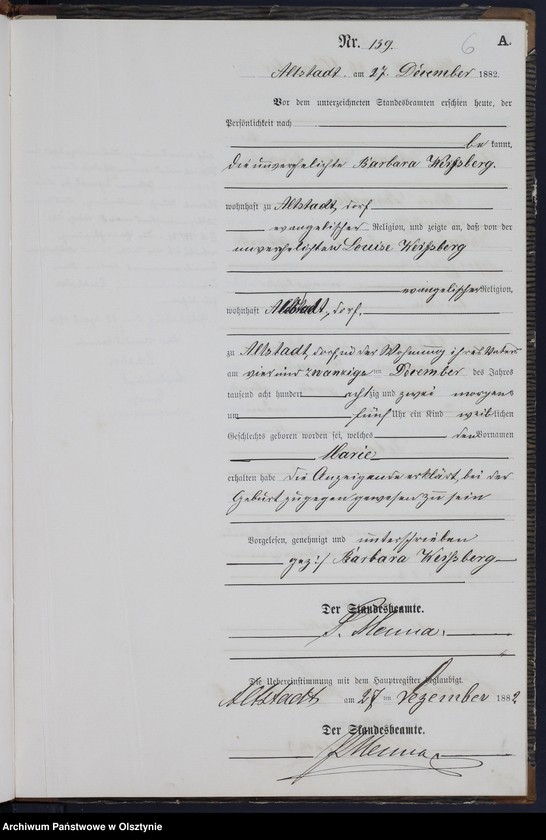 Nr. 159. 6 A.
Altstadt am 27. December 1882.
Vor dem unterzeichneten Standesbeamten erschien heute, der
Persönlichkeit nach
be kannt,
die unverehelichte Barbara Weißberg.
wohnhaft zu Altstadt, dorf
evangelischer Religion, und zeigte an, daß von der
unverehelichten Louise Weißberg
evangelischer Religion,
wohnhaft Altstadt, dorf,
zu Altstadt, dorf, in der Wohnung ihres Vaters
am vier und zwanzigsten December des Jahres
tausend acht hundert achtzig und zwei morgens
um fünf Uhr ein Kind weiblichen
Geschlechts geboren worden sei, welches den Vornamen
Marie
erhalten habe die Anzeigende erklärt, bei der
Geburt zugegen gewesen zu sein
Vorgelesen, genehmigt und unterschrieben
gez:/ Barbara Weißberg
Der Standesbeamte.
Die Uebereinstimmung mit dem Hauptregister beglaubigt.
Altstadt am 27 ten Dezember 1882
Der Standesbeamte.
Archiwum Państwowe w Olsztynie